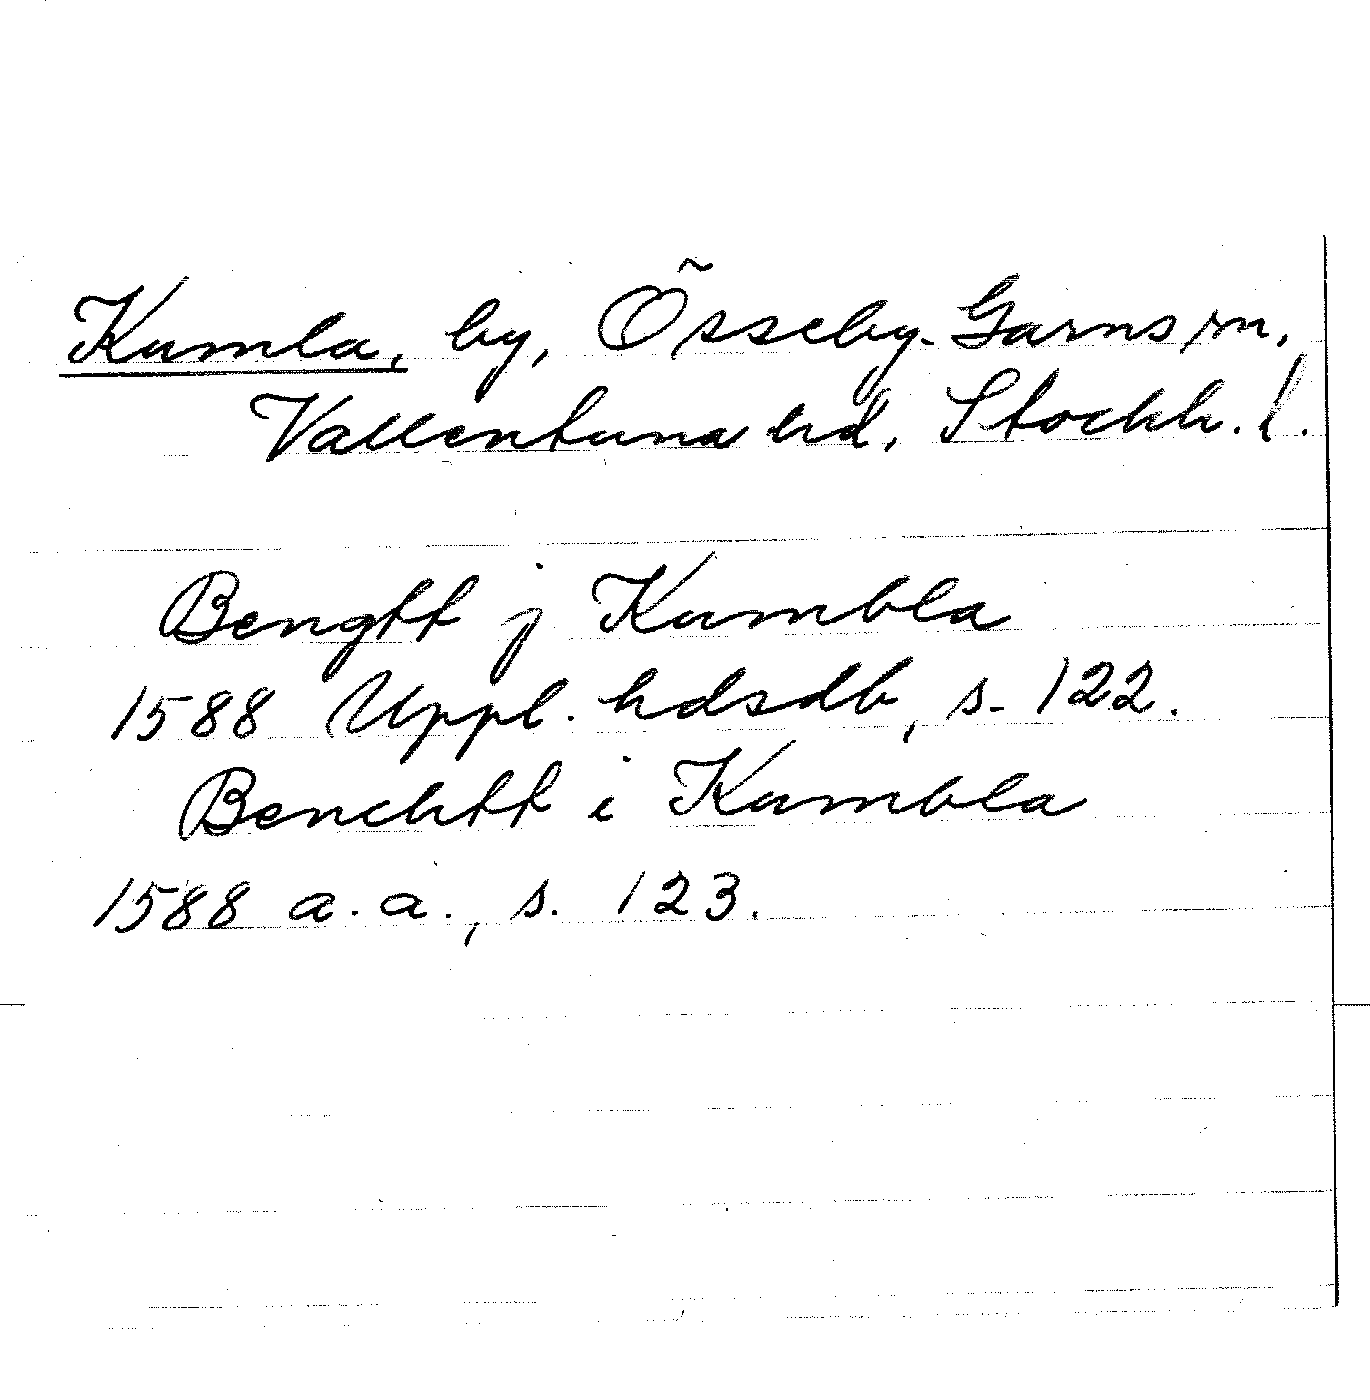 Kumla, by, Össeby-Garns sn,
Vallentuna hd, Stockh. l.
Bengtt j Kumbla
1588 Uppl. hdsdb, s. 122.
Benchtt i Kumbla
1588 a. a., s. 123.